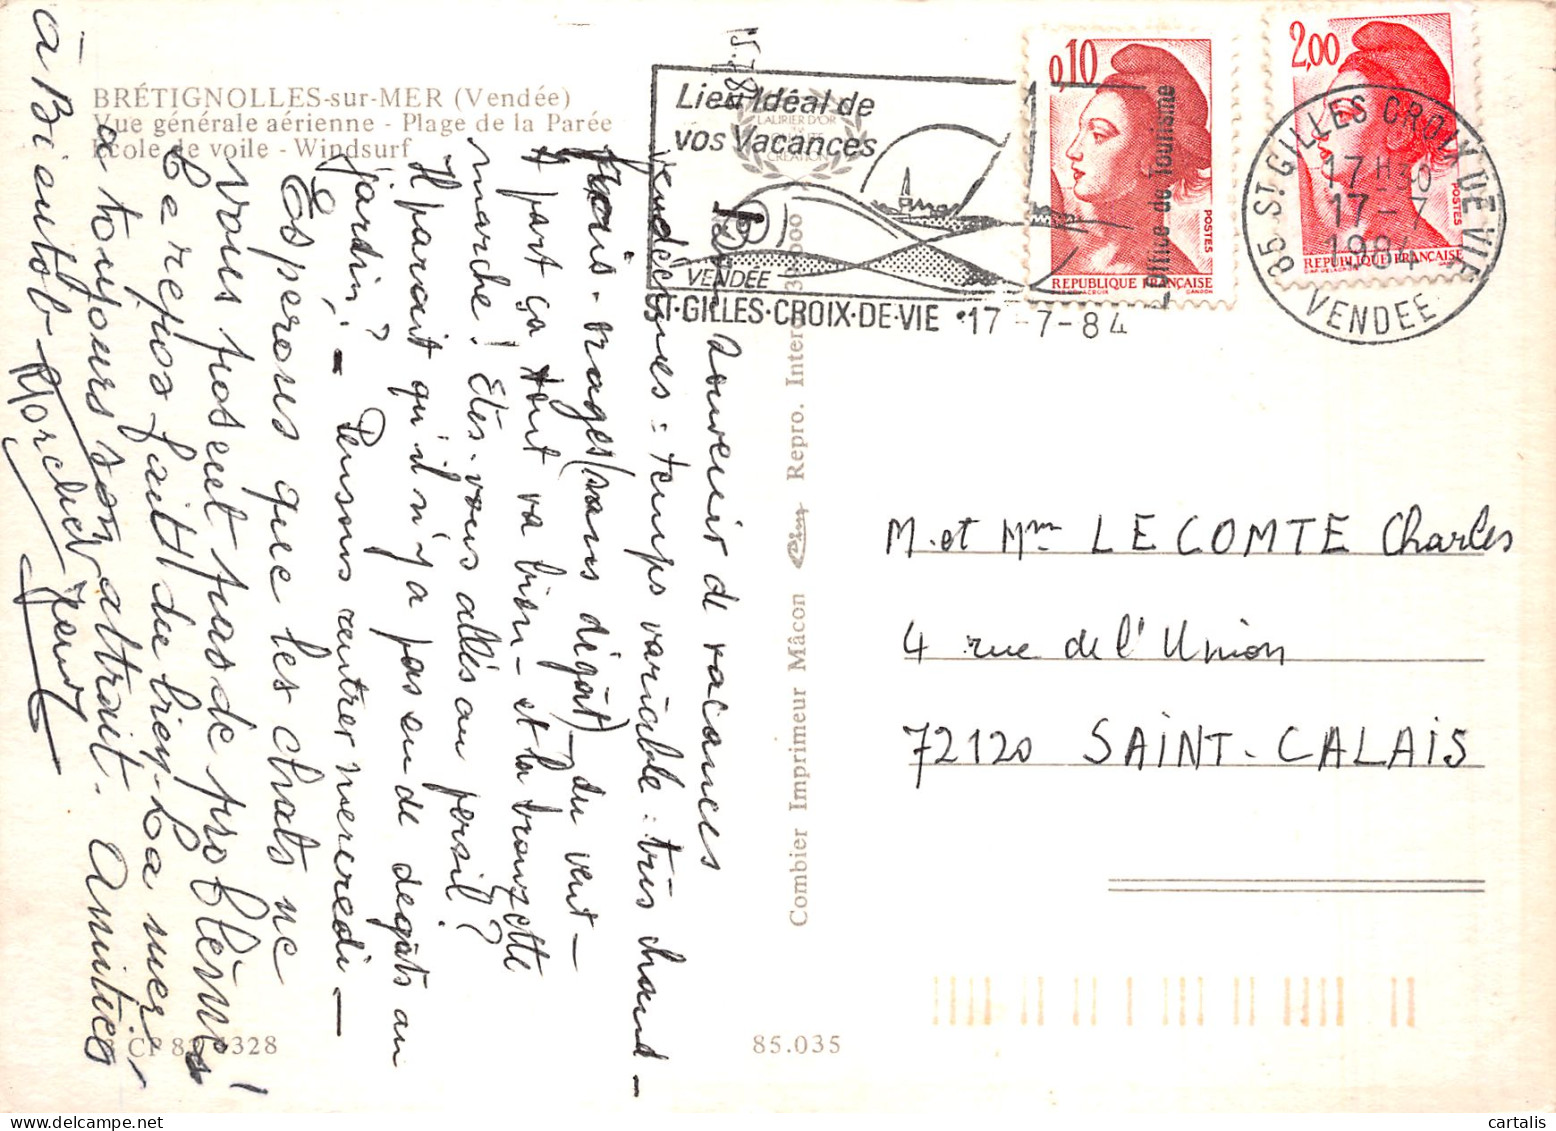 BRÉTIGNOLLES-sur-MER (Vendée)
Vue générale aérienne - Plage de la Parée
Ecole de voile - Windsurf
15.7.84
Souvenir de vacances
vendéennes : temps variable : très chaud -
frais - orages (sans dégât) du vent -
A part ça tout va bien - et la bronzette
marche ! Etes-vous allés au persil ?
Il paraît qu'il n'y a pas eu de dégâts au
jardin ? - Pensons rentrer mercredi -
Espérons que les chats ne
vous posent pas de problèmes !
Le repos fait du bien - La mer
a toujours son attrait. Amitiés
à Bientôt -
Lieu Idéal de
vos Vacances
VENDEE
ST-GILLES-CROIX-DE-VIE 17-7-84
Office de Tourisme
LAURIER D'OR
CREATION
0,10
POSTES
REPUBLIQUE FRANÇAISE
2,00
POSTES
REPUBLIQUE FRANÇAISE
85 ST GILLES CROIX DE VIE
17H30
17-7
1984
VENDEE
M. et Mme LECOMTE Charles
4 rue de l'Union
72120 SAINT-CALAIS
Combier Imprimeur Mâcon
Repro.
328
85.035
cartalis